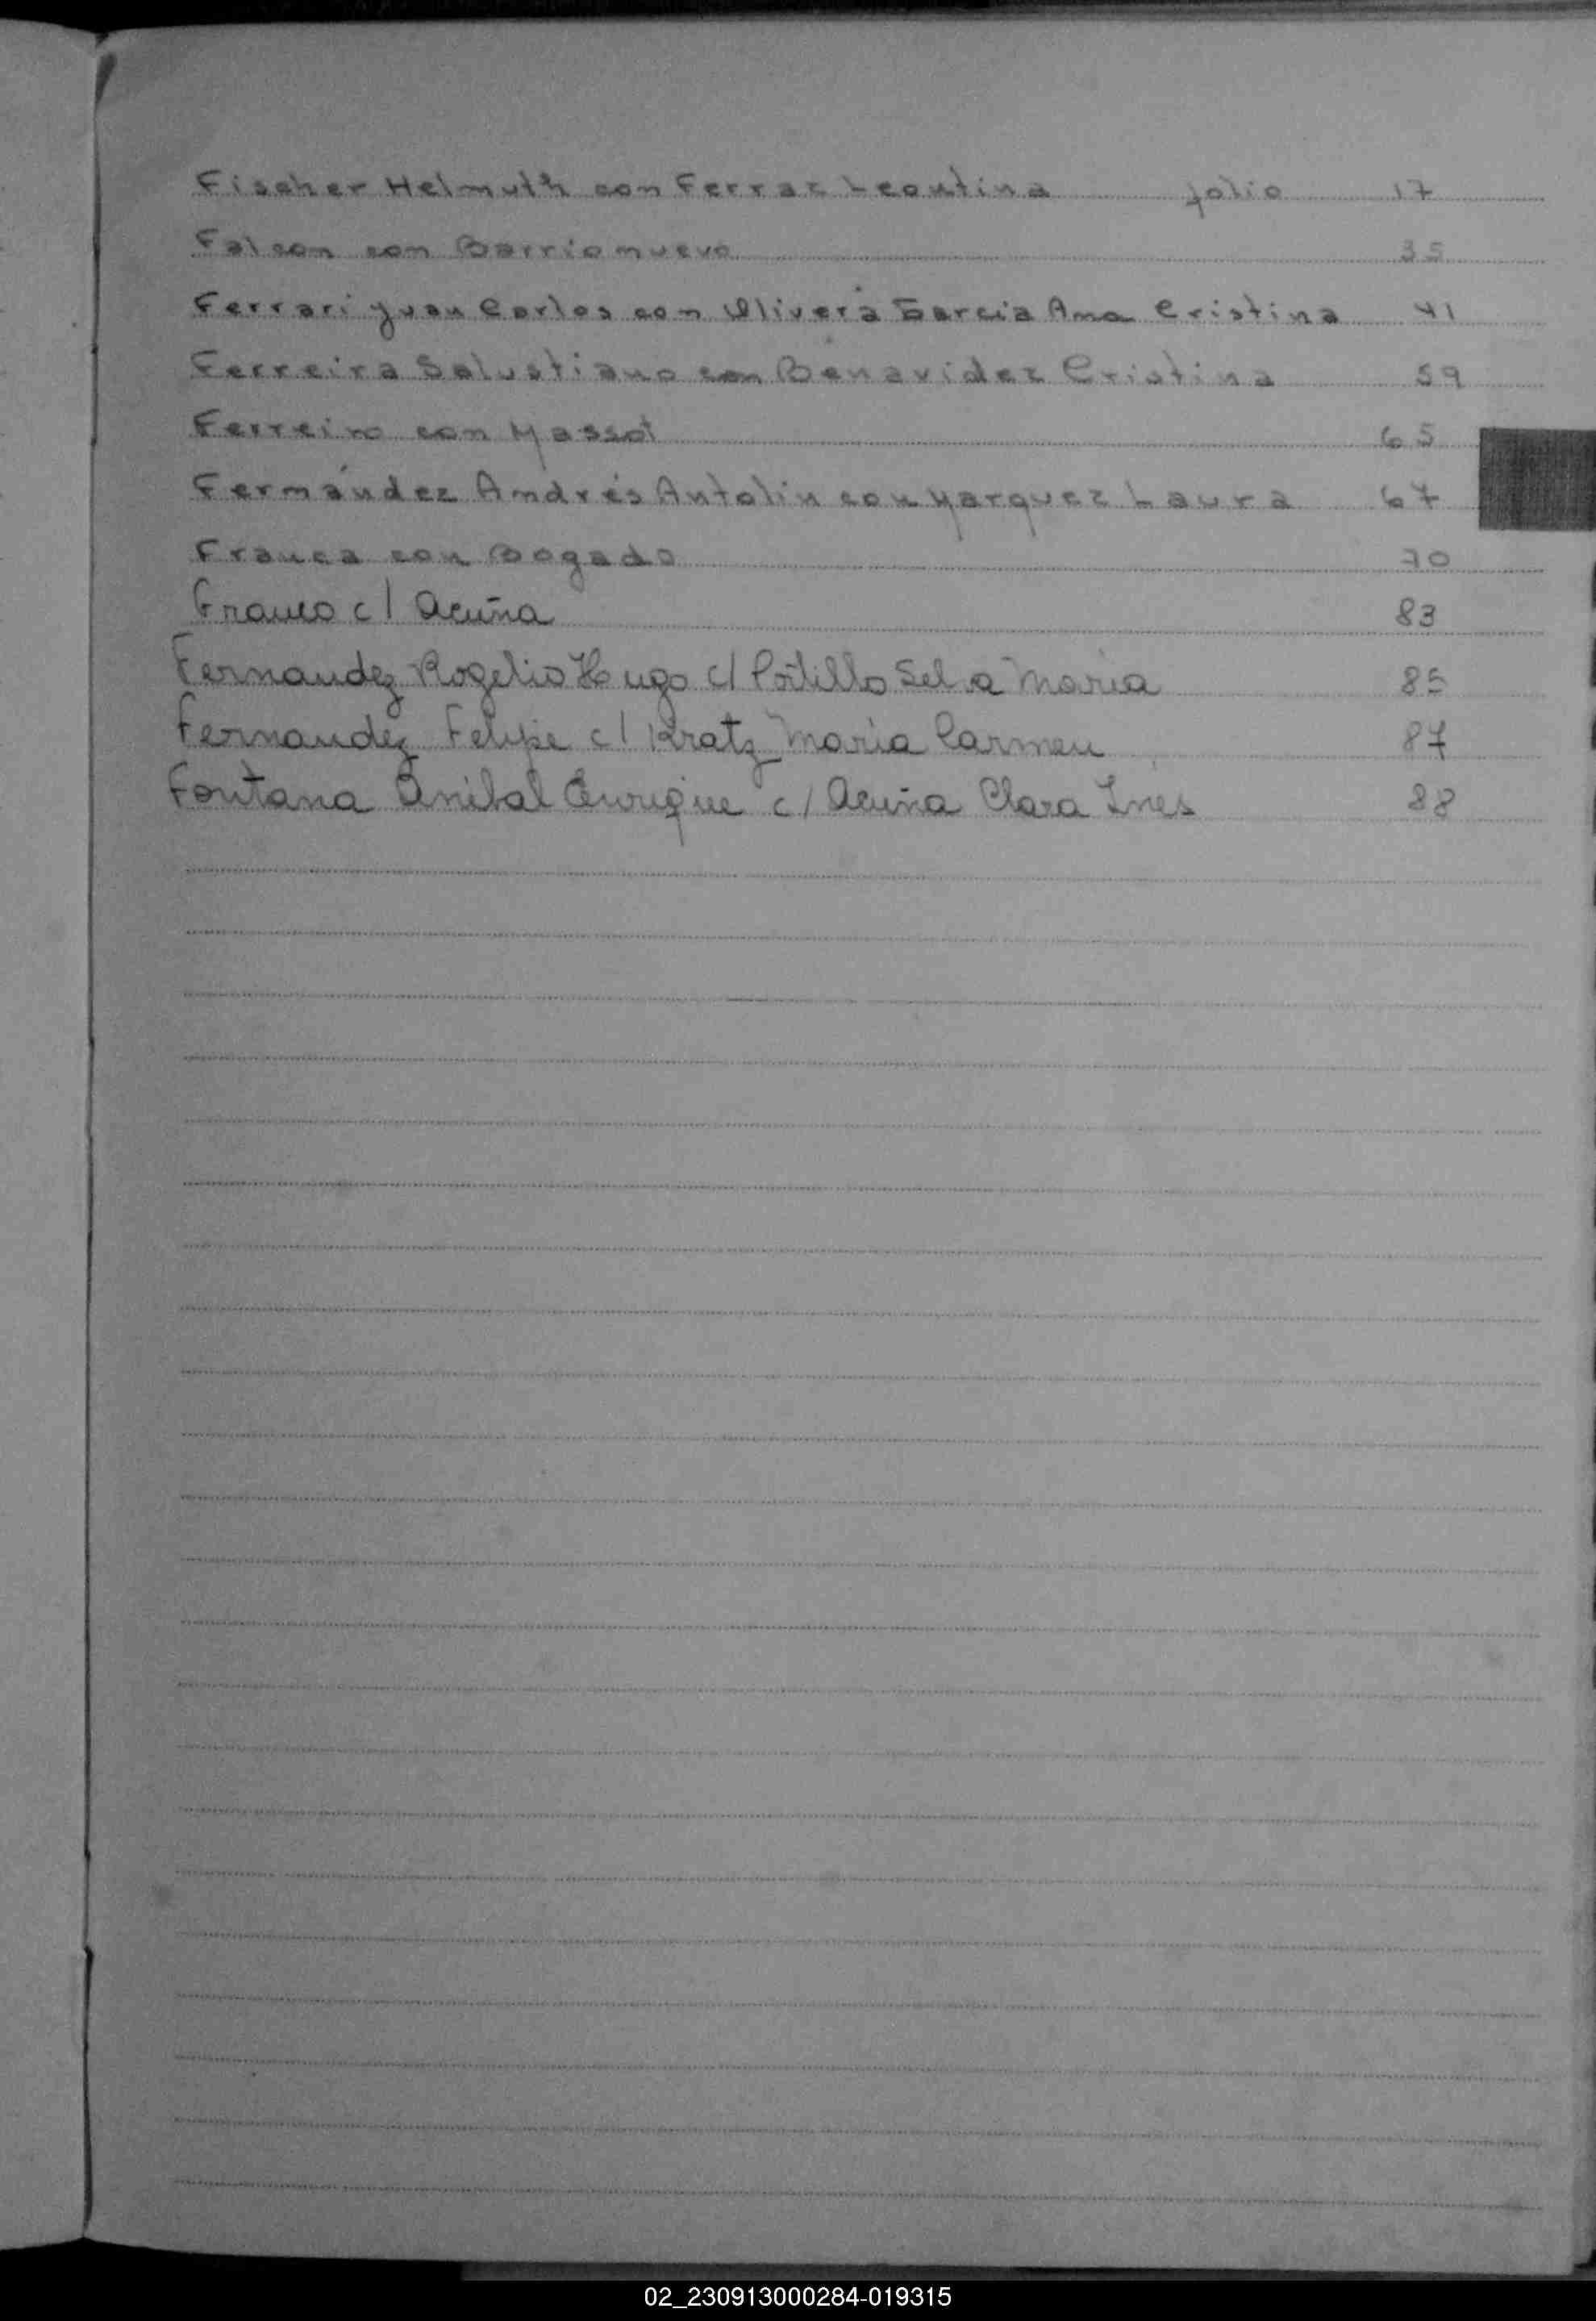 Fischer Helmuth con Ferraz Leontina folio 17
Falcon con Barrionuevo 35
Ferrari Juan Carlos con Olivera Garcia Ana Cristina 41
Ferreira Salustiano con Benavidez Cristina 59
Ferreiro con Massot 65
Fernández Andrés Antolin con Marquez Laura 67
Franca con Bogado 70
Franco c/ Acuña 83
Fernandez Rogelio Hugo c/ Portillo Sel a Maria 85
Fernandez Felipe c/ Kratz Maria Carmen 87
Fontana Anibal Enrique c/ Acuña Clara Ines 88
02_230913000284-019315